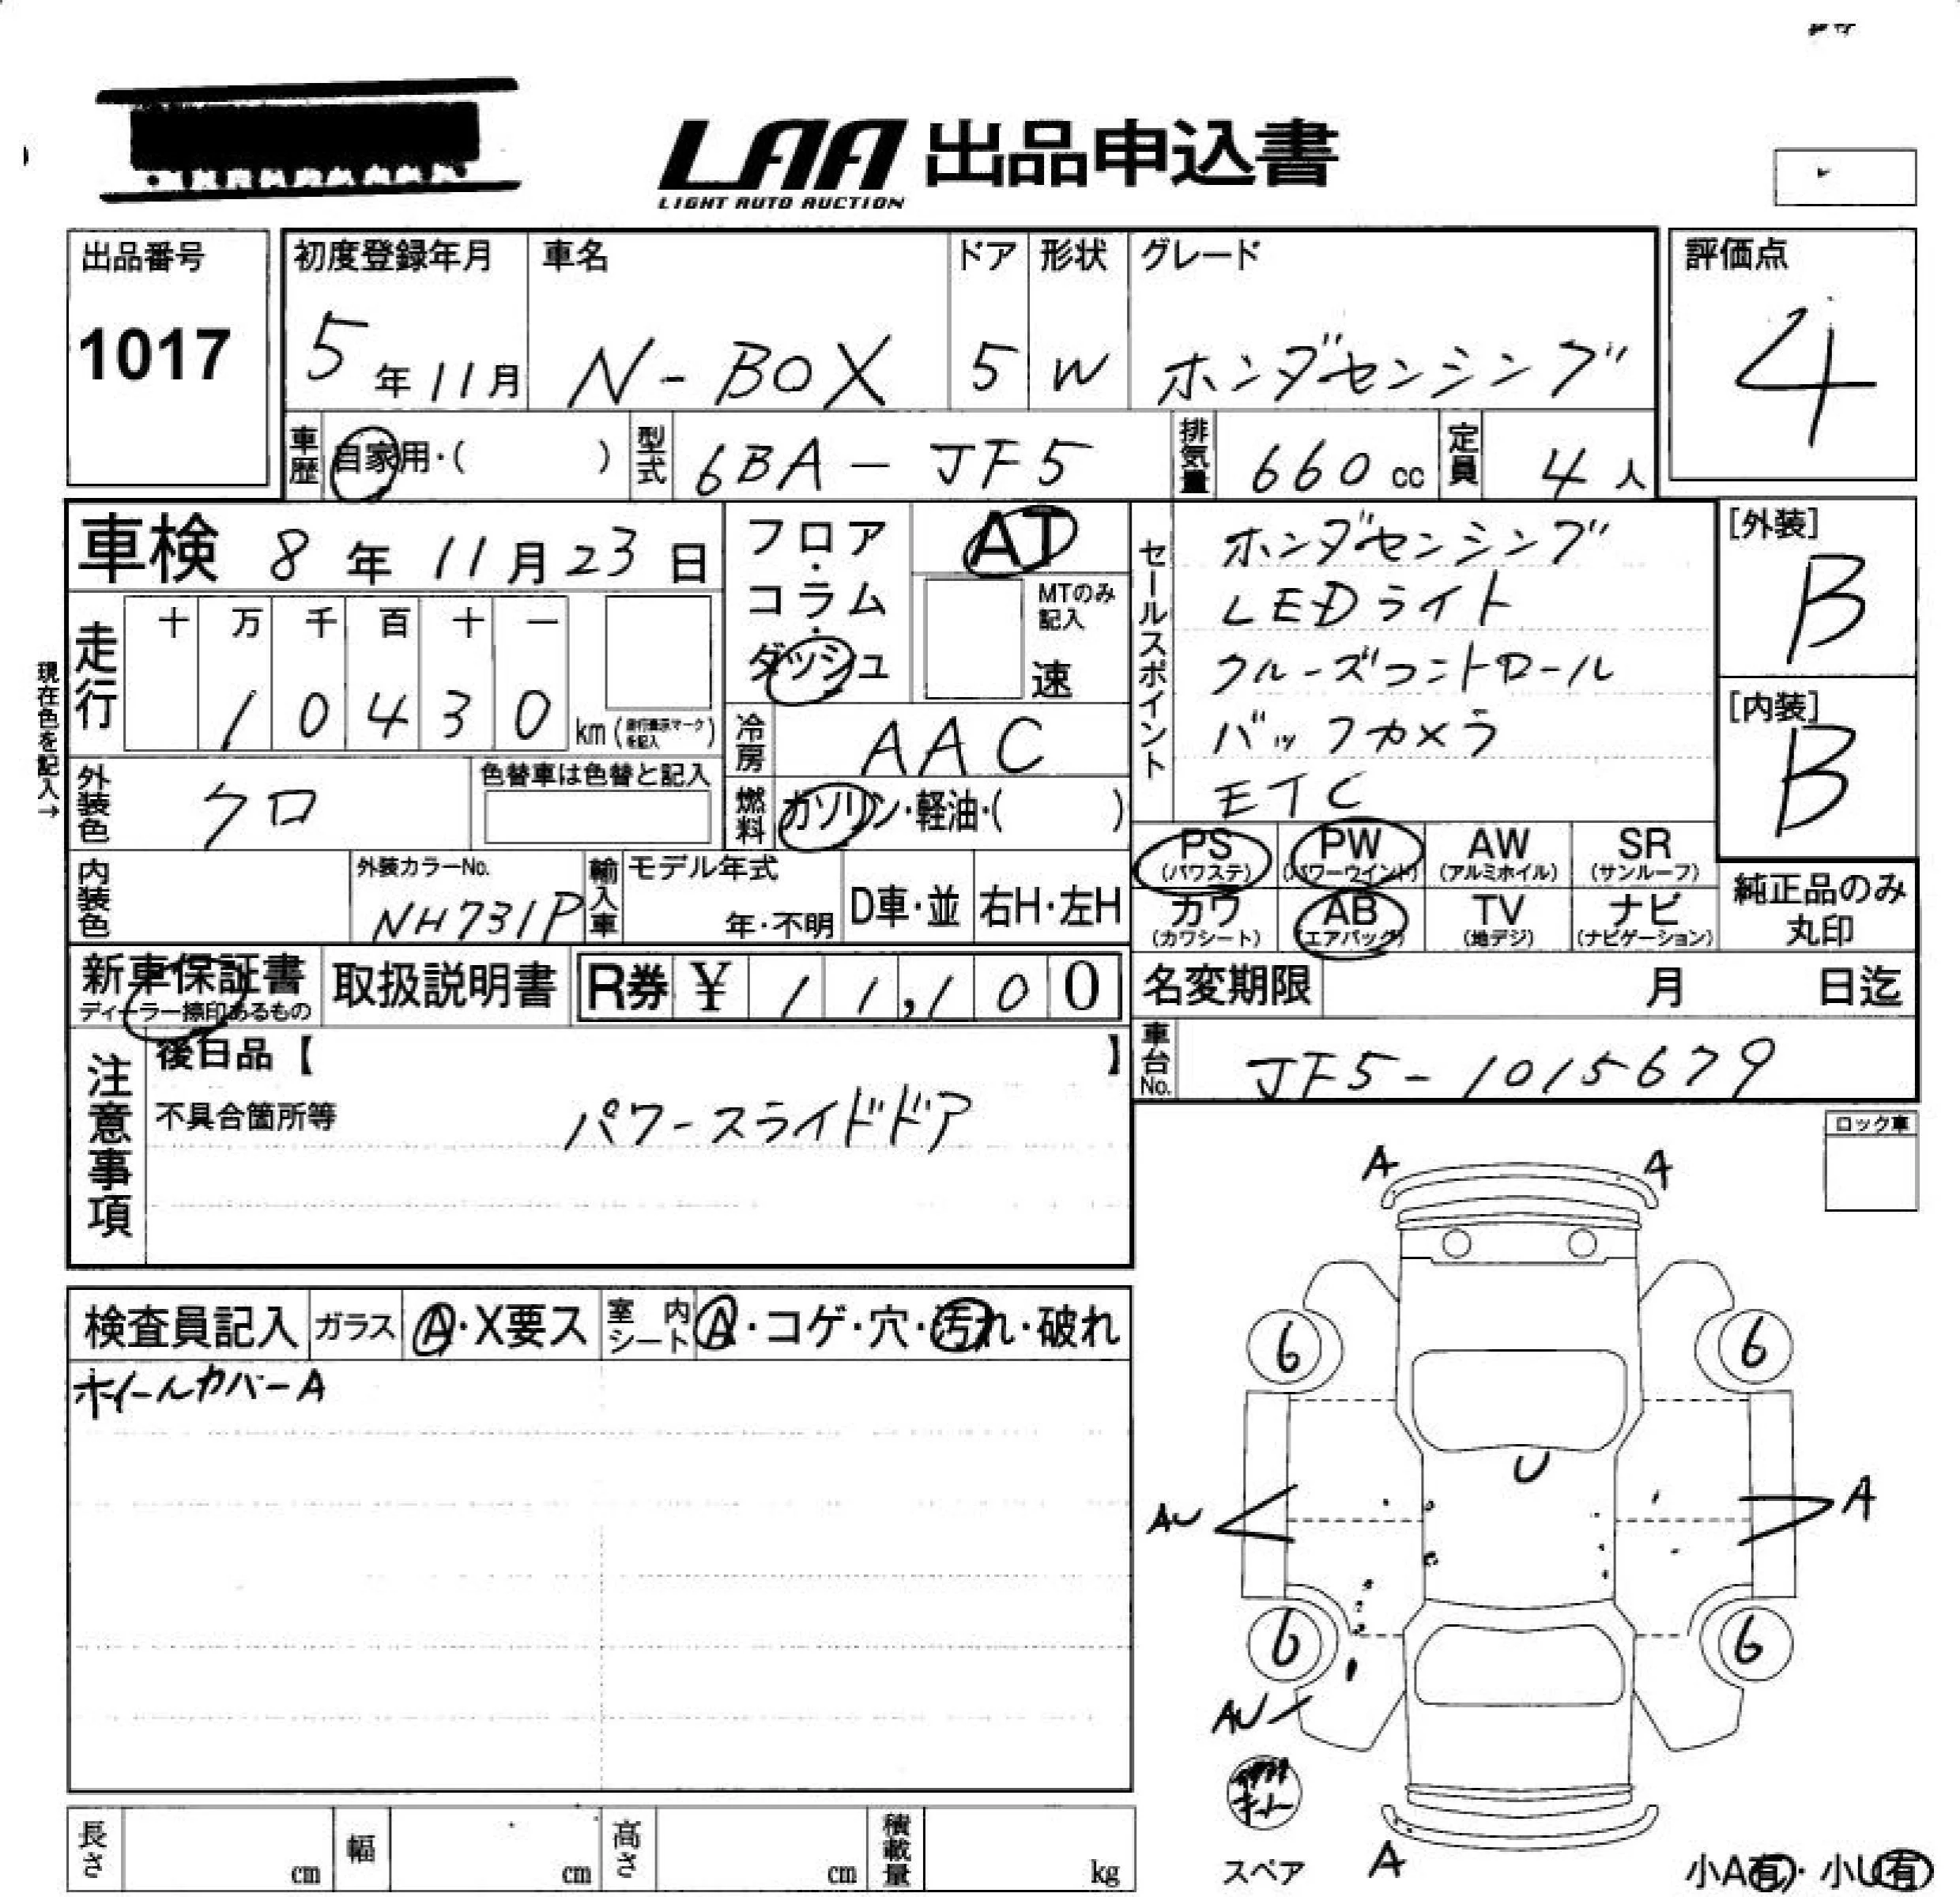 LAA 出品申込書
LIGHT AUTO AUCTION
出品番号 初度登録年月 車名 ドア 形状 グレード 評価点
1017 5年11月 N-BOX 5 W ホンダセンシング 4
車歴 自家用・( ) 型式 6BA-JF5 排気量 660cc 定員 4人
車検 8年11月23日 フロア・コラム・ダッシュ AT
MTのみ記入 速
セールスポイント
ホンダセンシング
LEDライト
クルーズコントロール
バックカメラ
ETC
[外装]
B
[内装]
B
現在色を記入→
走行 十 万 千 百 十 一
1 0 4 3 0 km(
を記入)
冷房 AAC
外装色 クロ 色替車は色替と記入
燃料 ガソリン・軽油・( )
PS PW AW SR
(パワステ) (パワーウインド) (アルミホイル) (サンルーフ)
カワ AB TV ナビ
(カワシート) (エアバッグ) (地デジ) (ナビゲーション)
純正品のみ
丸印
内装色 外装カラーNo. NH731P 輸入車 モデル年式 年・不明 D車・並 右H・左H
新車保証書 取扱説明書 R券 ¥ 11,100 名変期限 月 日迄
ディーラー捺印あるもの
車台No. JF5-1015679
注意事項
後日品【 】
不具合箇所等 パワースライドドア
ロック車
A A
検査員記入 ガラス A・X要ス 室内シート A・コゲ・穴・汚れ・破れ
ホイールカバーA
6 6
U
AU A
6 6
AU
A
スペア
小A有・小U有
長さ cm 幅 cm 高さ cm 積載量 kg